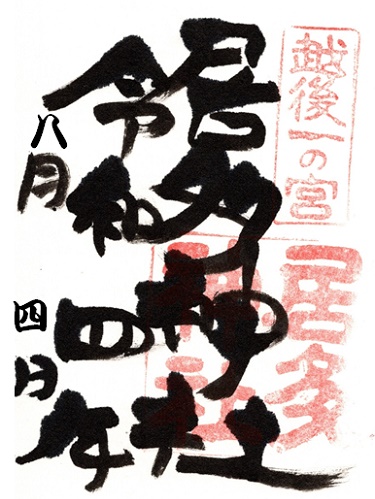 越後一の宮
居多神社
居多神社
令和四年
八月四日